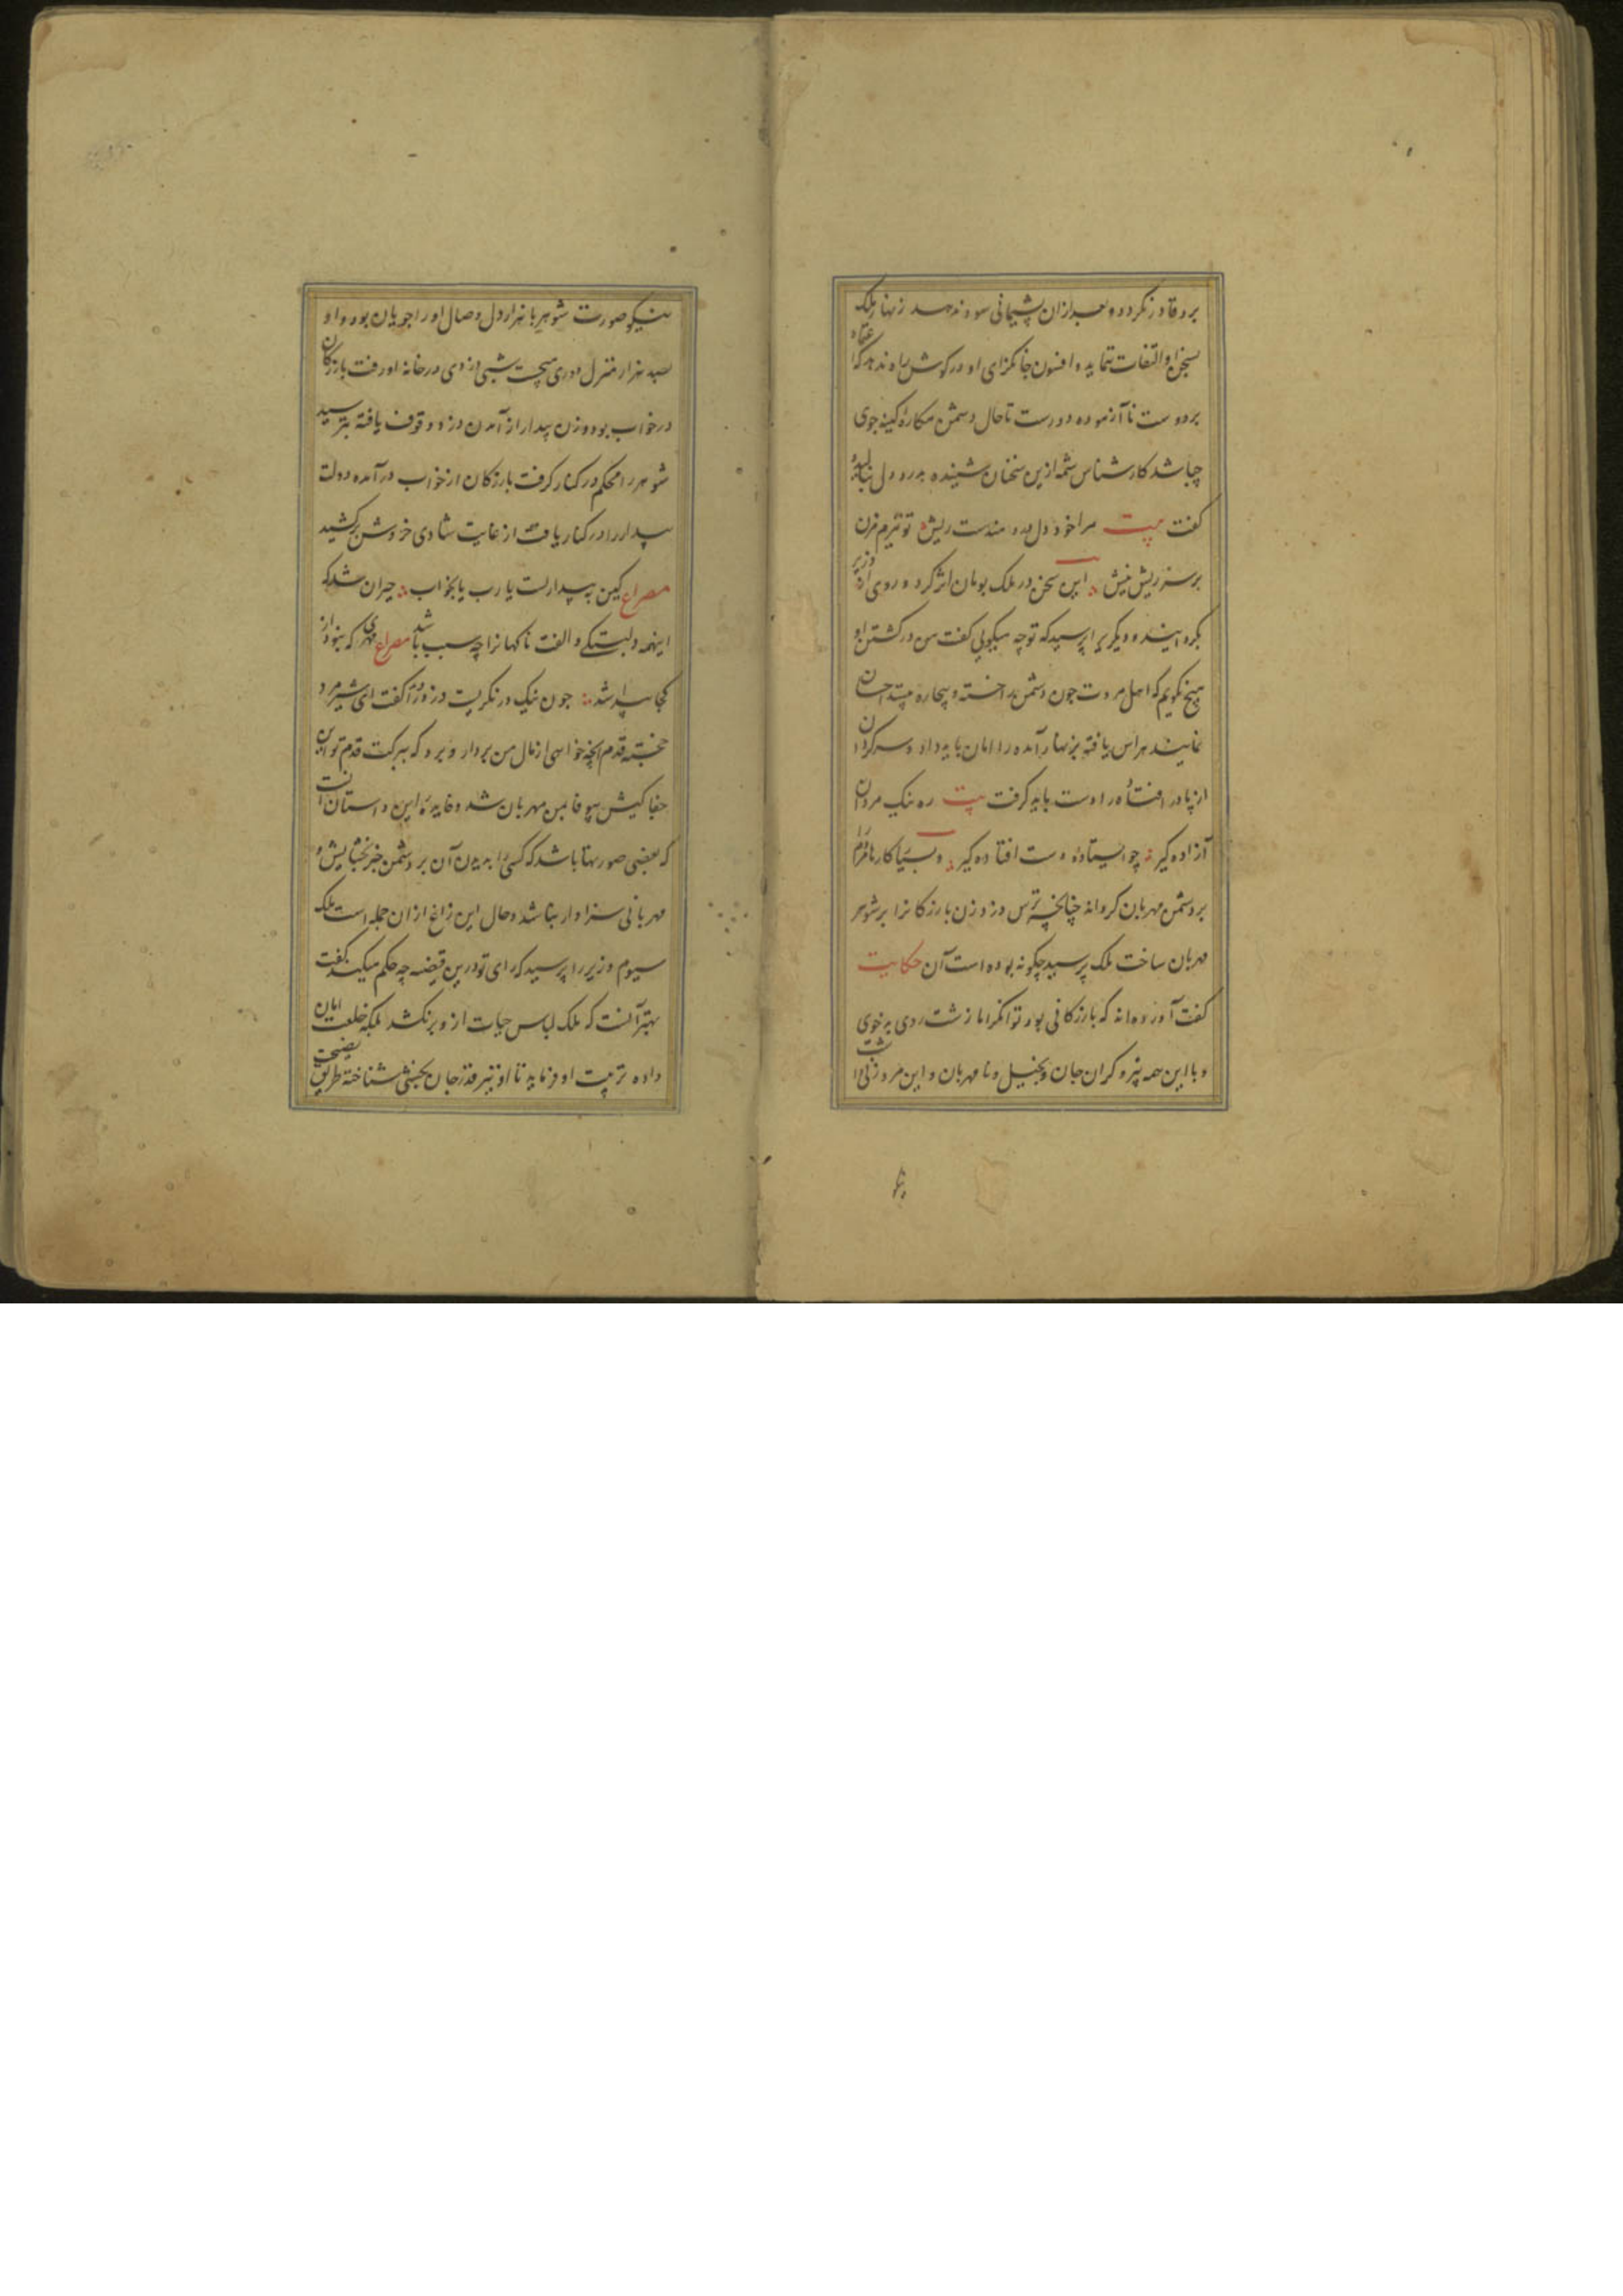 برو قادر نگردد و بعد ازان پشیمانی سود ندهد زنهار ملک
بسخن او التفات ننماید و افسون جانگزای او در گوش راه ندهد که اعتماد
بر دوست ناآزموده دورست تا بحال دشمن مکاره کینه جوی
چه باشد کارشناس شمه ازین سخنان شنیده بدرد دل بنالید و
گفت بیت مرا خود دل دردمندست ریش تو نیزم مزن
بر سر ریش نیش این سخن در ملک بومان اثر کرد و روی ازان وزیر
بگردانید و دیگریرا پرسید که تو چه میگویی گفت من در کشتن او
هیچ نگویم که اهل مروت چون دشمن را خسته و بیچاره بینند احسان
نمایند هراس یافته بزنهار آمده را امان باید داد و سرگردان
از پا در افتاده را دست باید گرفت بیت ره نیک مردان
آزاده گیر چو ایستاده دست افتاده گیر و بسیار کارها مردم را
بر دشمن مهربان گرداند چنانچه ترس دزد زن بازرگانرا بر شوهر
مهربان ساخت ملک پرسید چگونه بوده است آن حکایت
گفت آورده اند که بازرگانی بود توانگر اما زشت روی بدخوی
و با این همه پیر و گران جان و بخیل و نامهربان و این مرد زنی داشت
نیکو صورت شوهر با هزار دل وصال او را جویان بود و او
بصد هزار منزل دوری میجست شبی دزدی در خانه او رفت بازرگان
در خواب بود و زن بیدار از آمدن دزد وقوف یافته بترسید
شوهر را محکم در کنار گرفت بازرگان از خواب درآمده دولت
بیدار را در کنار یافت از غایت شادی خروش برکشید
مصراع کین به بیدارست یا رب یا بخواب حیران شد که
اینهمه دلبستگی و الفت ناگهانرا چه سبب باشد مصراع مهری که نبود از
کجا پیدا شد چون نیک در نگریست دزد را دید گفت ای شیر مرد
خجسته قدم آنچه خواهی از مال من بردار و ببر که ببرکت قدم تو این
جفا کیش بیوفا بمن مهربان شد و فایده این داستان آنست
که بعضی صورتها باشد که کسی را بدیدن آن بر دشمن جز بخشایش و
مهربانی سزاوار نباشد و حال این زاغ از ان جمله است ملک
سیوم وزیر را پرسید که رای تو درین قضیه چه حکم میکند گفت
بهتر آنست که ملک لباس حیات ازو برنکشد بلکه خلعت امان
داده تربیت او فرماید تا او نیز قدر جان بخشی شناخته طریق نصیحت